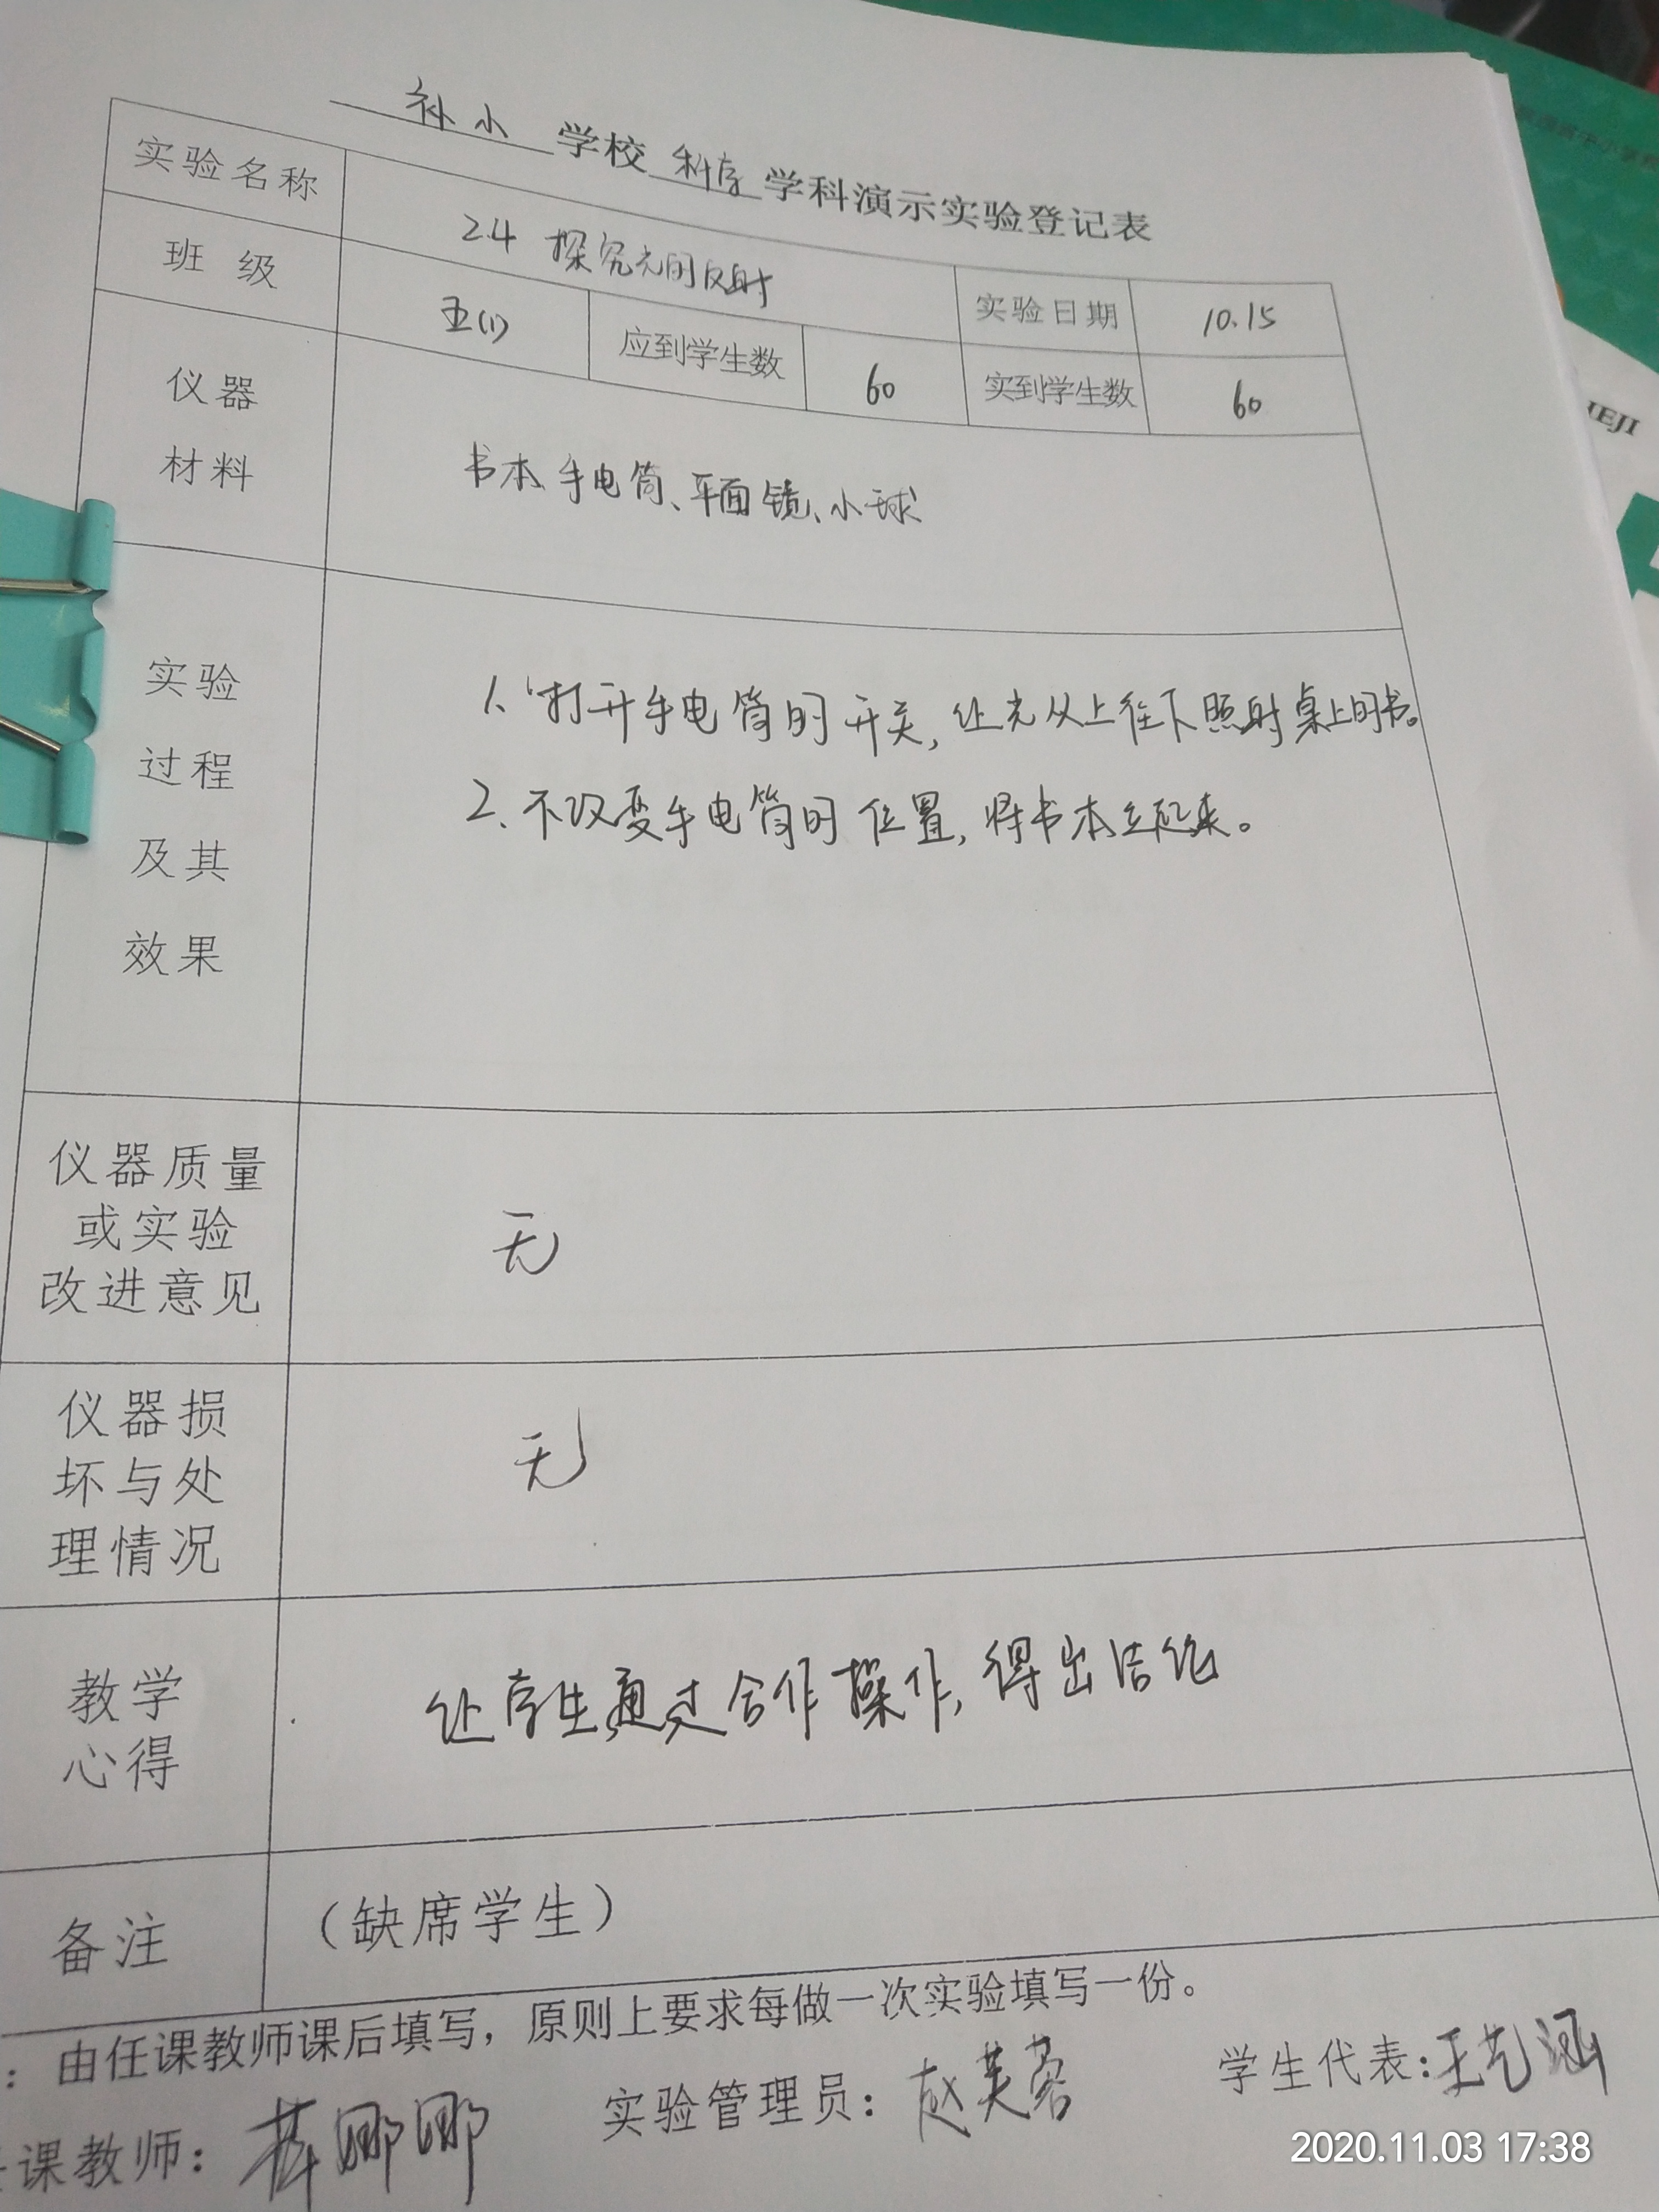 补小 学校 科学 学科演示实验登记表
实验名称 2.4 探究光的反射 实验日期 10.15
班 级 五(1) 应到学生数 60 实到学生数 60
仪器
材料
书本、手电筒、平面镜、小球
实验
过程
及其
效果
1、打开手电筒的开关,让光从上往下照射桌上的书。
2、不改变手电筒的位置,将书本立起来。
仪器质量
或实验
改进意见
无
仪器损
坏与处
理情况
无
教学
心得
让学生通过合作操作,得出结论
备注 (缺席学生)
:由任课教师课后填写,原则上要求每做一次实验填写一份。
课教师: 娜娜 实验管理员:赵芙蓉 学生代表:王艺涵
IEJI
2020.11.03 17:38